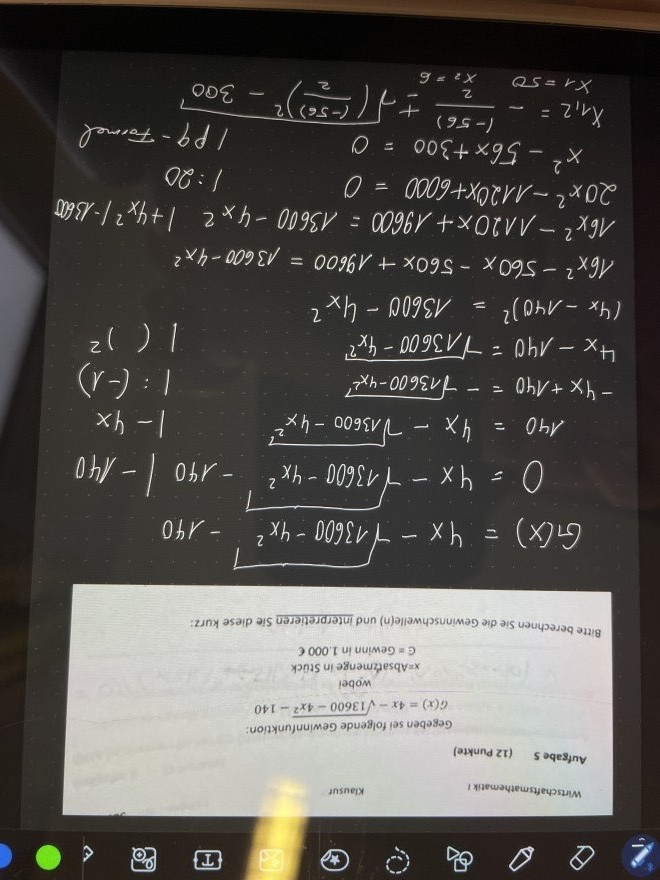 Wirtschaftsmathematik I Klausur
Aufgabe 5 (12 Punkte)
Gegeben sei folgende Gewinnfunktion:
G(x) = 4x − √13600 − 4x² − 140
wobei
x=Absatzmenge in Stück
G = Gewinn in 1.000 €
Bitte berechnen Sie die Gewinnschwelle(n) und interpretieren Sie diese kurz:
G(x) = 4x − √13600 − 4x² − 140
0 = 4x − √13600 − 4x² − 140 | − 140
140 = 4x − √13600 − 4x² | − 4x
−4x + 140 = − √13600 − 4x² | : (−1)
4x − 140 = √13600 − 4x² | ( )²
(4x − 140)² = 13600 − 4x²
16x² − 560x − 560x + 19600 = 13600 − 4x²
16x² − 1120x + 19600 = 13600 − 4x² | +4x² | −13600
20x² − 1120x + 6000 = 0 | : 20
x² − 56x + 300 = 0 | pq − Formel
x1,2 = − (−56)/2 ± √((−56)/2)² − 300
x1 = 50 x2 = 6